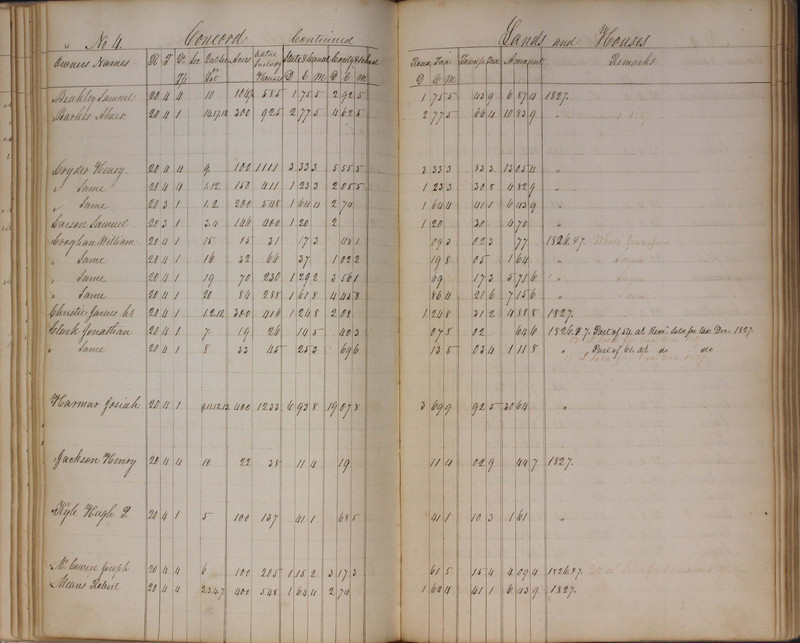 No 4. Concord Continued Lands and Houses
Owners Names R T Qr Sec Lot Acres Value State & Canal County & School Road Tax Townsp Tax Amount Remarks
Samuel 20 4 4 10 585 1 75 5 2 92 5 1 75 5 43 9 6 87 4 1827.
Barker Abner 20 4 1 300 925 2 77 5 4 62 5 2 77 5 66 4 10 83 9
Henry 20 4 4 9 100 1111 3 33 3 5 55 5 3 33 3 83 3 13 05 4 "
" Same 20 4 4 1.12 150 411 1 23 3 2 05 5 1 23 3 30 8 4 82 9 "
" Same 20 3 1 1.2 200 548 1 64 4 2 74 1 64 4 41 1 6 43 9 "
Carson Samuel 20 3 1 3.4 146 400 1 20 2 1 20 30 4 70 "
Croghan William 20 4 1 15 15 31 17 3 48 1 09 3 02 3 77 1826.&7.
" Same 20 4 1 16 32 66 37 1 02 2 19 8 05 1 64 "
" Same 20 4 1 19 70 230 1 29 2 3 56 1 69 17 3 5 71 6 "
" Same 20 4 1 20 84 288 1 61 8 4 45 8 86 4 21 6 7 15 6 "
Christie James 20 4 1 300 416 1 24 8 2 08 1 24 8 31 2 4 88 8 1827.
Clark Jonathan 20 4 1 7 19 26 14 5 40 3 07 8 02 64 6 1826.&7. Part of 54 at Rem. Sold for tax Dec. 1827
" Same 20 4 1 8 33 45 25 3 69 6 13 5 03 4 1 11 8 " Part of 61 at do do
Harmar Josiah 20 4 1 400 1233 6 93 8 19 07 8 3 69 9 92 5 30 64 "
Jackson Henry 20 4 4 10 22 38 11 4 19 11 4 02 9 44 7 1827.
Kyle Hugh P. 20 4 1 5 100 137 41 1 68 5 41 1 10 3 1 61 "
Joseph 20 4 4 6 100 205 1 15 2 3 17 3 61 5 15 4 4 09 4 1826.&7.
Means Robert 20 4 4 2.3.4.7 400 548 1 64 4 2 74 1 64 4 41 1 6 43 9 1827.